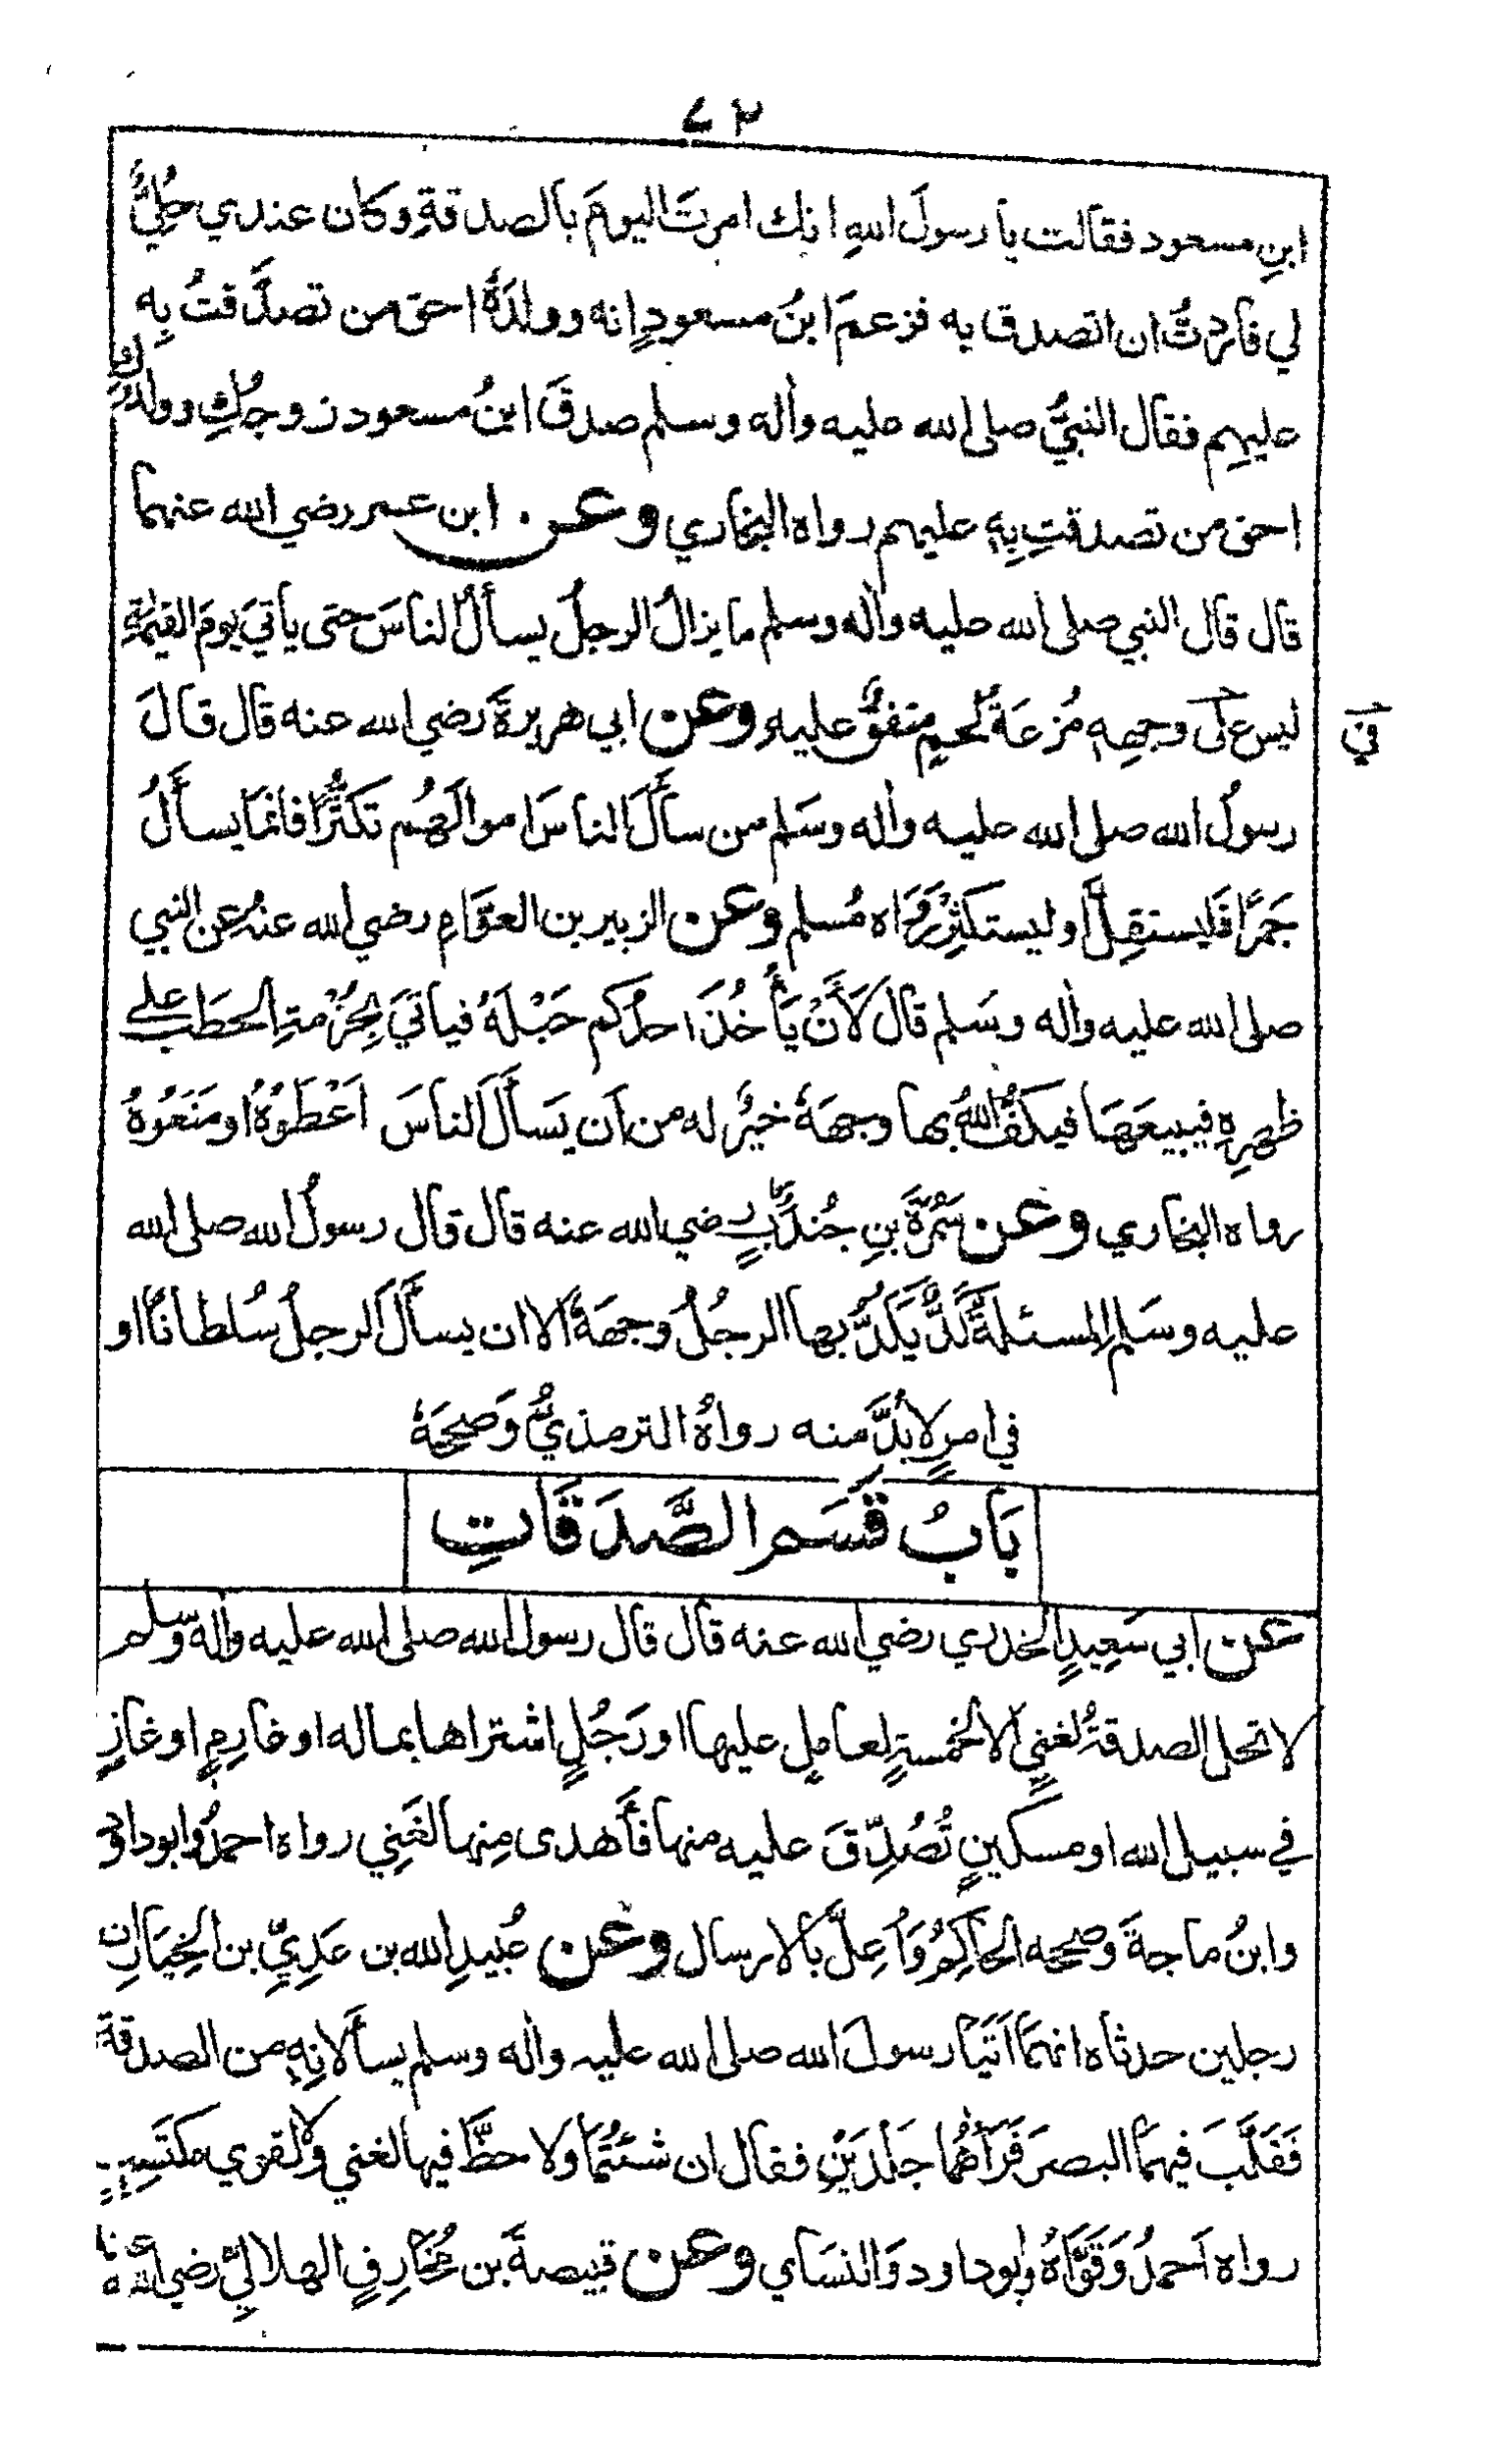 ٧٣
ابنِ مسعود فقالت يا رسولَ اللهِ انك امرتَ اليومَ بالصدقةِ وكان عندي حُلِيٌّ
لي فاردتُ ان اتصدق به فزعمَ ابنُ مسعودٍ انه وولدَهُ احق من تصدَّقتُ بِه
عليهِم فقال النبيُّ صلى الله عليه واٰله وسلم صدقَ ابنُ مسعود زوجُكِ وولدُكِ
احق من تصدقتِ بِهٖ عليهم رواه البخاري وعن ابن عمر رضي الله عنهما
قال قال النبي صلى الله عليه واٰله وسلم ما يزالُ الرجلُ يسألُ الناسَ حتى ياتيَ يومَ القيٰمةِ
ليس على وجهِهٖ مُزعَةُ لحمٍ متفقٌ عليهِ وعن ابي هريرةَ رضي الله عنه قال قالَ
في
رسولُ الله صلى الله عليه واٰله وسَلم من سألَ الناسَ اموالَهُم تكثُّرًا فانمَا يسألُ
جَمرًا فَليستقِلَّ او ليستكثِرْ رَوَاه مُسلم وعن الزبير بن العوَّامِ رضي الله عنهُ عن النبي
صلى الله عليه واٰله وسَلم قالَ لَأَنْ يَأْخُذَ احدُكم حَبْلَهُ فياتيَ بِحُزْمةِ الحطَبِ على
ظهرِهٖ فيبيعَهَا فيكفَّ اللهُ بها وجهَهٗ خيرٌ له من اَن يَسأَلَ الناسَ اَعْطَوْهُ او مَنَعُوهُ
رواه البخاري وعن سَمُرَةَ بنِ جُندُبٍ رضي الله عنه قال قال رسولُ الله صلى الله
عليه وسَلم المسئلةُ كَدٌّ يَكُدُّ بها الرجُلُ وجهَهٗ الا ان يسأَلَ الرجلُ سُلطانًا او
في امرٍ لا بُدَّ منه رواهُ الترمذيُّ وَصححَهٗ
بَابُ قَسَم الصَّدَقَاتِ
عن ابي سَعِيدٍ الخدري رضي الله عنه قال قال رسول الله صلى الله عليه واٰله وسلم
لا تحل الصدقةُ لغنيٍّ الا لخمسةٍ لعاملٍ عليها او رَجُلٍ اشتراها بماله او غارِمٍ او غازٍ
في سبيل الله او مسكينٍ تُصُدِّقَ عليه منها فأَهدى مِنها لغَنِي رواه احمدُ وابو داود
وابنُ ماجةَ وصححه الحاكِمُ وَاُعِلَّ بالارسال وعن عُبيدِ الله بن عَدِيِّ بن الخِيَارِ ان
رجلين حدثاه انهمَا اَتَيَا رسولَ الله صلى الله عليه واٰله وسلم يسألانِهٖ من الصدقة
فَقَلَّبَ فيهمَا البصرَ فَرَآهُمَا جَلدَيْنِ فقال ان شئتُمَا ولا حظَّ فيها لغني ولا لقوي مكتَسِبٍ
رواه اَحمدُ وَقَوَّاهُ وابو داود وَالنسَاي وعن قبيصةَ بن مُخَارِفٍ الهلاليِّ رضي الله عنه